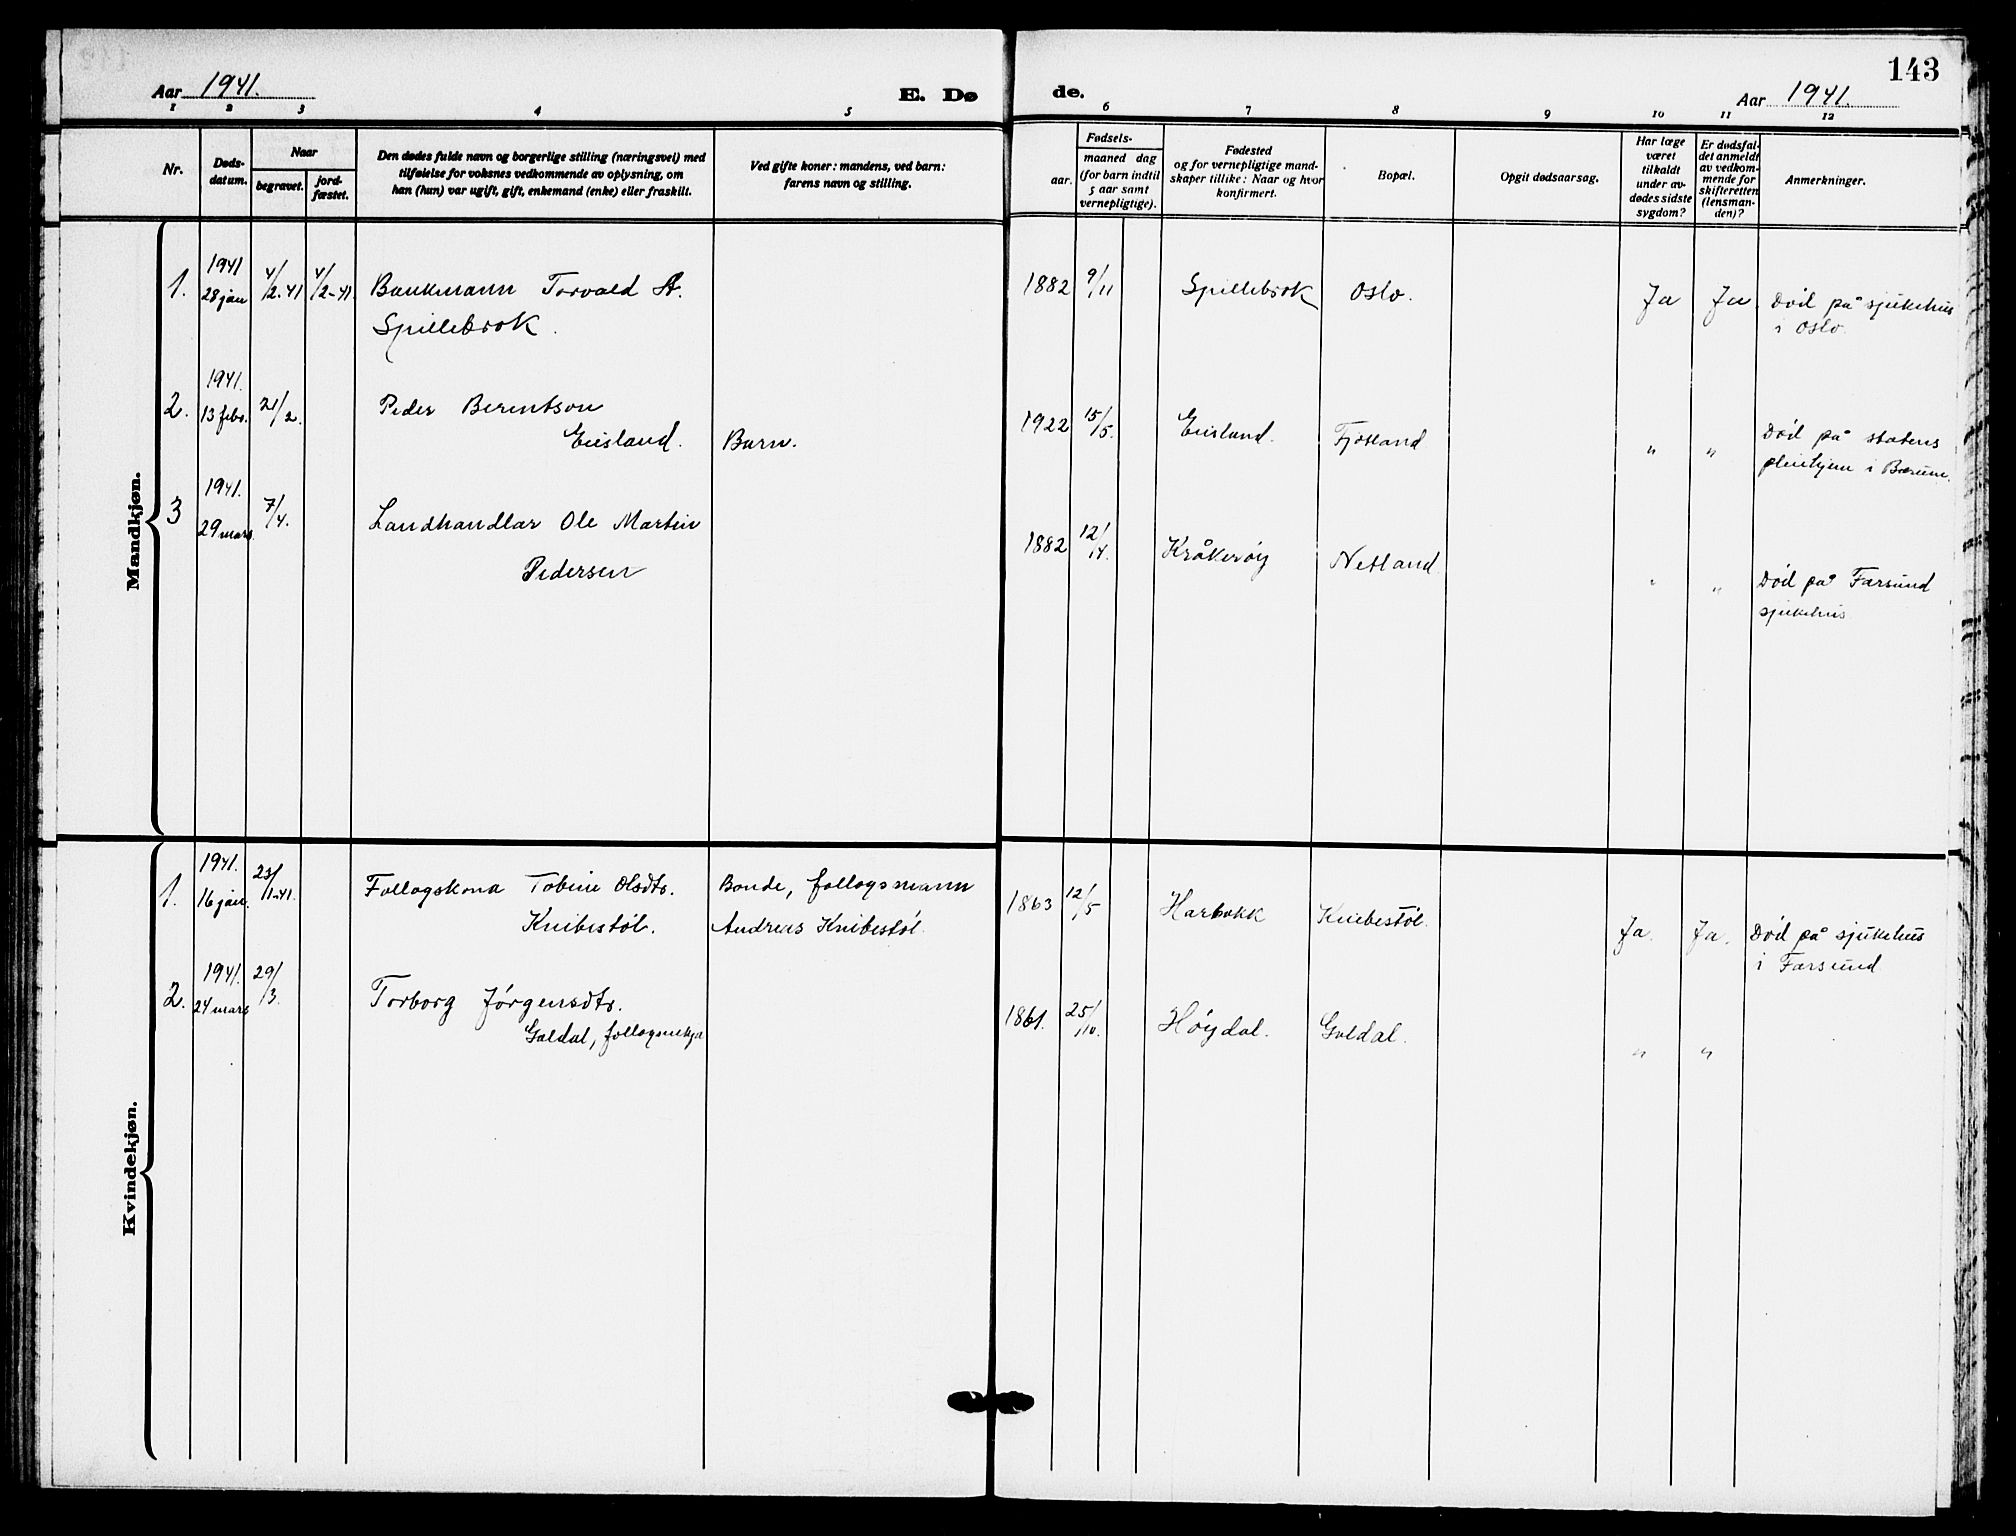 143
Aar 1941.
E. Dø
de.
Aar 1941.
1 2 3 4 5 6 7 8 9 10 11 12
Nr.
Døds-
datum.
Naar
begravet.
jord-
fæstet.
Den dødes fulde navn og borgerlige stilling (næringsvei) med
tilføielse for voksnes vedkommende av oplysning, om
han (hun) var ugift, gift, enkemand (enke) eller fraskilt.
Ved gifte koner: mandens, ved barn:
farens navn og stilling.
Fødsels-
aar.
maaned dag
(for barn indtil
5 aar samt
vernepligtige).
Fødested
og for vernepligtige mand-
skaper tillike: Naar og hvor
konfirmert.
Bopæl.
Opgit dødsaarsag.
Har læge
været
tilkaldt
under av-
dødes sidste
sygdom?
Er dødsfal-
det anmeldt
av vedkom-
mende for
skifteretten
(lensman-
den)?
Anmerkninger.
Mandkjøn.
1. 1941 28 jan 4/2-41 4/2-41. Bankmann Torvald A.
Spillebrok.
1882 9/11 Spillebrok Oslo. Ja Ja Död på sjukehus
i Oslo.
2. 1941. 13 febr. 21/2. Peder Berentson
Eiesland. Barn.
1922 15/5. Eiesland. Fjotland " " Död på statens
pleiehjem i Bærum.
3 1941. 29 mars. 7/4. Landhandlar Ole Martin
Pedersen
1882 12/14. Kråkerøy Netland. " " Död på Farsund
sjukehus
Kvindekjøn.
1. 1941. 16 jan. 23/1-41. Follogskona Tobine Olsdtr.
Knibestöl.
Bonde, follogsmann
Andreas Knibestöl.
1863 12/5 Harbokk Knibestöl. Ja. Ja. Död på sjukehus
i Farsund
2. 1941. 24 mars 29/3. Torborg Jörgensdtr.
Galdal, follogsenkja
1861. 25/10. Höydal. Galdal. " "